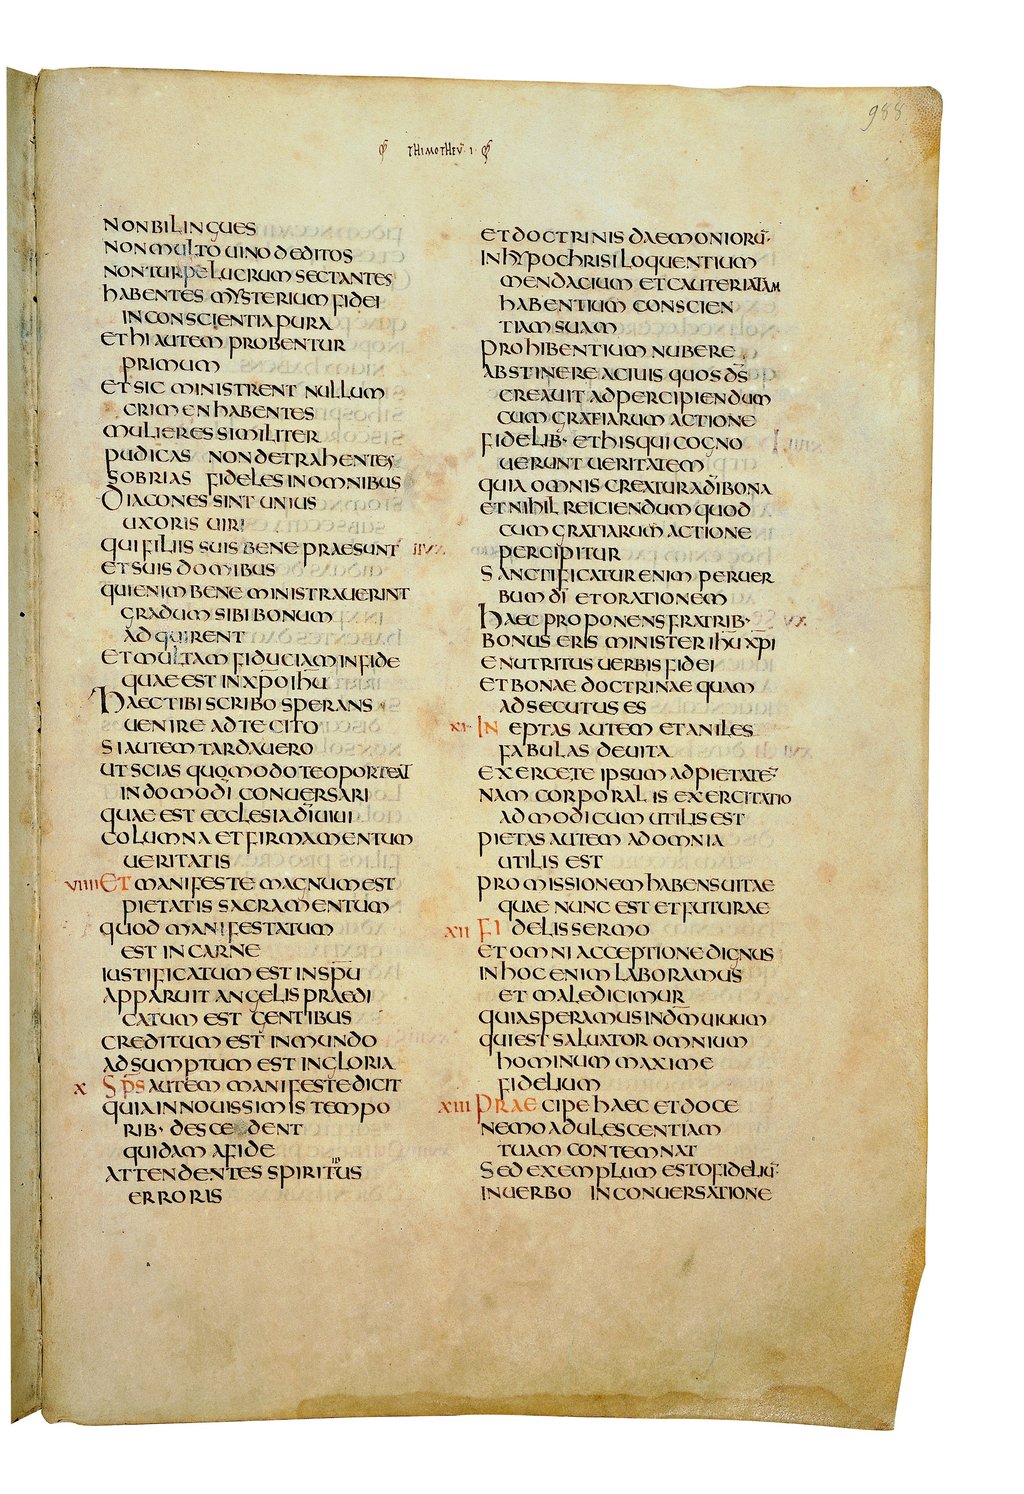 988
THIMOTHEU · I ·
NON BILINGUES
NON MULTO UINO DEDITOS
NON TURPE LUCRUM SECTANTES
HABENTES MYSTERIUM FIDEI
IN CONSCIENTIA PURA
ET HI AUTEM PROBENTUR
PRIMUM
ET SIC MINISTRENT NULLUM
CRIMEN HABENTES
MULIERES SIMILITER
PUDICAS NON DETRAHENTES
SOBRIAS FIDELES IN OMNIBUS
DIACONES SINT UNIUS
UXORIS UIRI
QUI FILIIS SUIS BENE PRAESUNT
ET SUIS DOMIBUS
QUI ENIM BENE MINISTRAUERINT
GRADUM SIBI BONUM
ADQUIRENT
ET MULTAM FIDUCIAM IN FIDE
QUAE EST IN XP̄O IHŪ
HAEC TIBI SCRIBO SPERANS
UENIRE AD TE CITO
SI AUTEM TARDAUERO
UT SCIAS QUOMODO TE OPORTEAT
IN DOMO DĪ CONUERSARI
QUAE EST ECCLESIA DĪ UIUI
COLUMNA ET FIRMAMENTUM
UERITATIS
VIIII ET MANIFESTE MAGNUM EST
PIETATIS SACRAMENTUM
QUOD MANIFESTATUM
EST IN CARNE
IUSTIFICATUM EST IN SPŪ
APPARUIT ANGELIS PRAEDI
CATUM EST GENTIBUS
CREDITUM EST IN MUNDO
ADSUMPTUM EST IN GLORIA
X SP̄S AUTEM MANIFESTE DICIT
QUIA IN NOUISSIMIS TEMPO
RIB· DESCEDENT
QUIDAM A FIDE
ATTENDENTES SPIRITUS
ERRORIS
ET DOCTRINIS DAEMONIORŪ·
IN HYPOCHRISI LOQUENTIUM
MENDACIUM ET CAUTERIATAM
HABENTIUM CONSCIEN
TIAM SUAM
PROHIBENTIUM NUBERE
ABSTINERE A CIUIS QUOS D̄S
CREAUIT AD PERCIPIENDUM
CUM GRATIARUM ACTIONE
FIDELIB· ET HIS QUI COGNO
UERUNT UERITATEM
QUIA OMNIS CREATURA DĪ BONA
ET NIHIL REICIENDUM QUOD
CUM GRATIARUM ACTIONE
PERCIPITUR
SANCTIFICATUR ENIM PER UER
BUM DĪ ET ORATIONEM
HAEC PROPONENS FRATRIB·
BONUS ERIS MINISTER IHŪ XP̄I
ENUTRITUS UERBIS FIDEI
ET BONAE DOCTRINAE QUAM
ADSECUTUS ES
XI· INEPTAS AUTEM ET ANILES
FABULAS DEUITA
EXERCE TE IPSUM AD PIETATĒ·
NAM CORPORALIS EXERCITATIO
AD MODICUM UTILIS EST
PIETAS AUTEM AD OMNIA
UTILIS EST
PROMISSIONEM HABENS UITAE
QUAE NUNC EST ET FUTURAE
XII FIDELIS SERMO
ET OMNI ACCEPTIONE DIGNUS
IN HOC ENIM LABORAMUS
ET MALEDICIMUR
QUIA SPERAMUS IN DM̄ UIUUM
QUI EST SALUATOR OMNIUM
HOMINUM MAXIME
FIDELIUM
XIII PRAECIPE HAEC ET DOCE
NEMO ADULESCENTIAM
TUAM CONTEMNAT
SED EXEMPLUM ESTO FIDELIŪ·
IN UERBO IN CONUERSATIONE